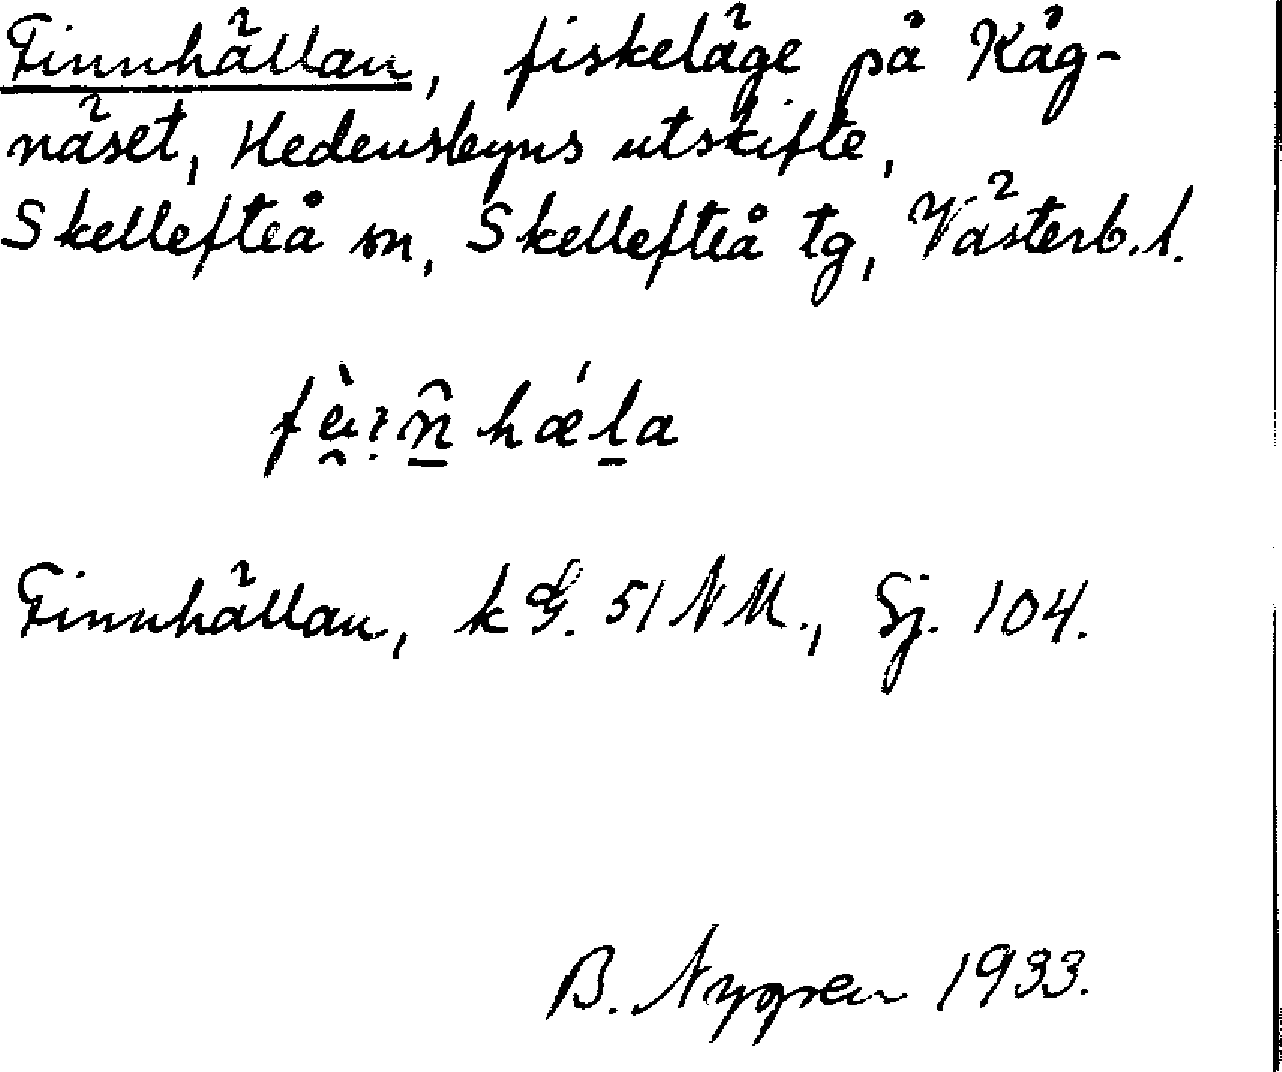 Finnhällan, fiskeläge på Kåg-
näset, Hedensbyns utskifte,
Skellefteå sn, Skellefteå tg, Västerb. l.
Finnhällan, k G. 51 NM., Sj. 104.
B. Nygren 1933.